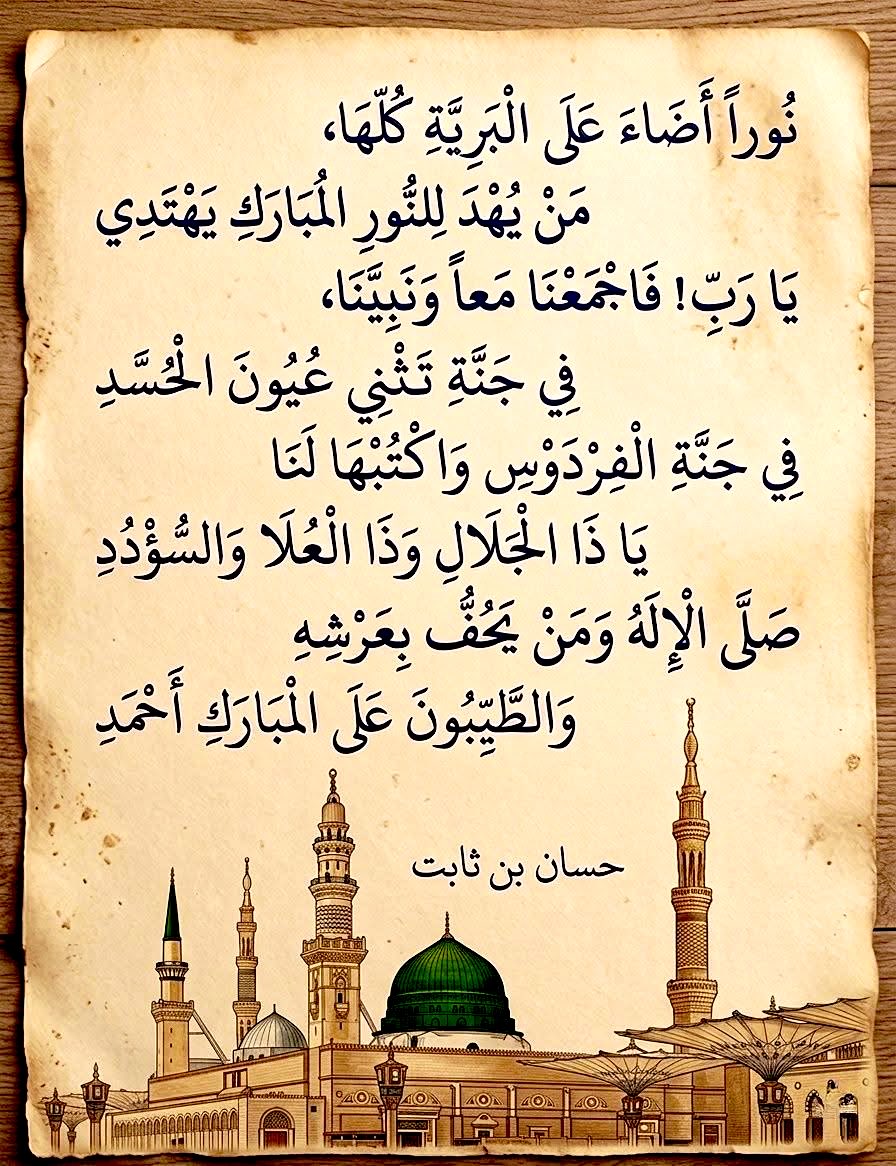 نُوراً أَضَاءَ عَلَى الْبَرِيَّةِ كُلّهَا،
مَنْ يُهْدَ لِلنُّورِ المُبَارَكِ يَهْتَدِي
يَا رَبِّ! فَاجْمَعْنَا مَعاً وَنَبِيَّنَا،
فِي جَنَّةِ تَثْنِي عُيُونَ الْحُسَّدِ
فِي جَنَّةِ الْفِرْدَوْسِ وَاكْتُبْهَا لَنَا
يَا ذَا الْجَلَالِ وَذَا الْعُلَا وَالسُّؤْدُدِ
صَلَّى الْإِلَهُ وَمَنْ يَحُفُّ بِعَرْشِهِ
وَالطَّيِّبُونَ عَلَى الْمْبَارَكِ أَحْمَدِ
حسان بن ثابت